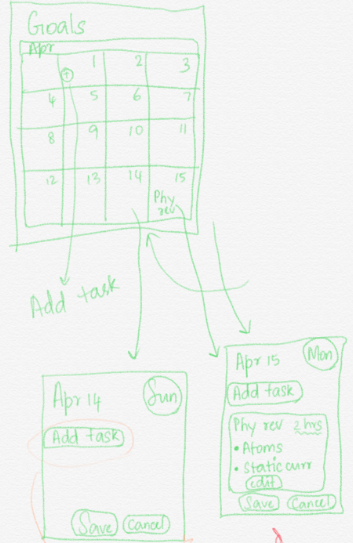 Goals
Apr
1 2 3
4 5 6 7
8 9 10 11
12 13 14 15
Phy
rev
Add task
Apr 14 Sun
Add task
Save Cancel
Apr 15 Mon
Add task
Phy rev 2 hrs
• Atoms
• Static curr
edit
Save Cancel